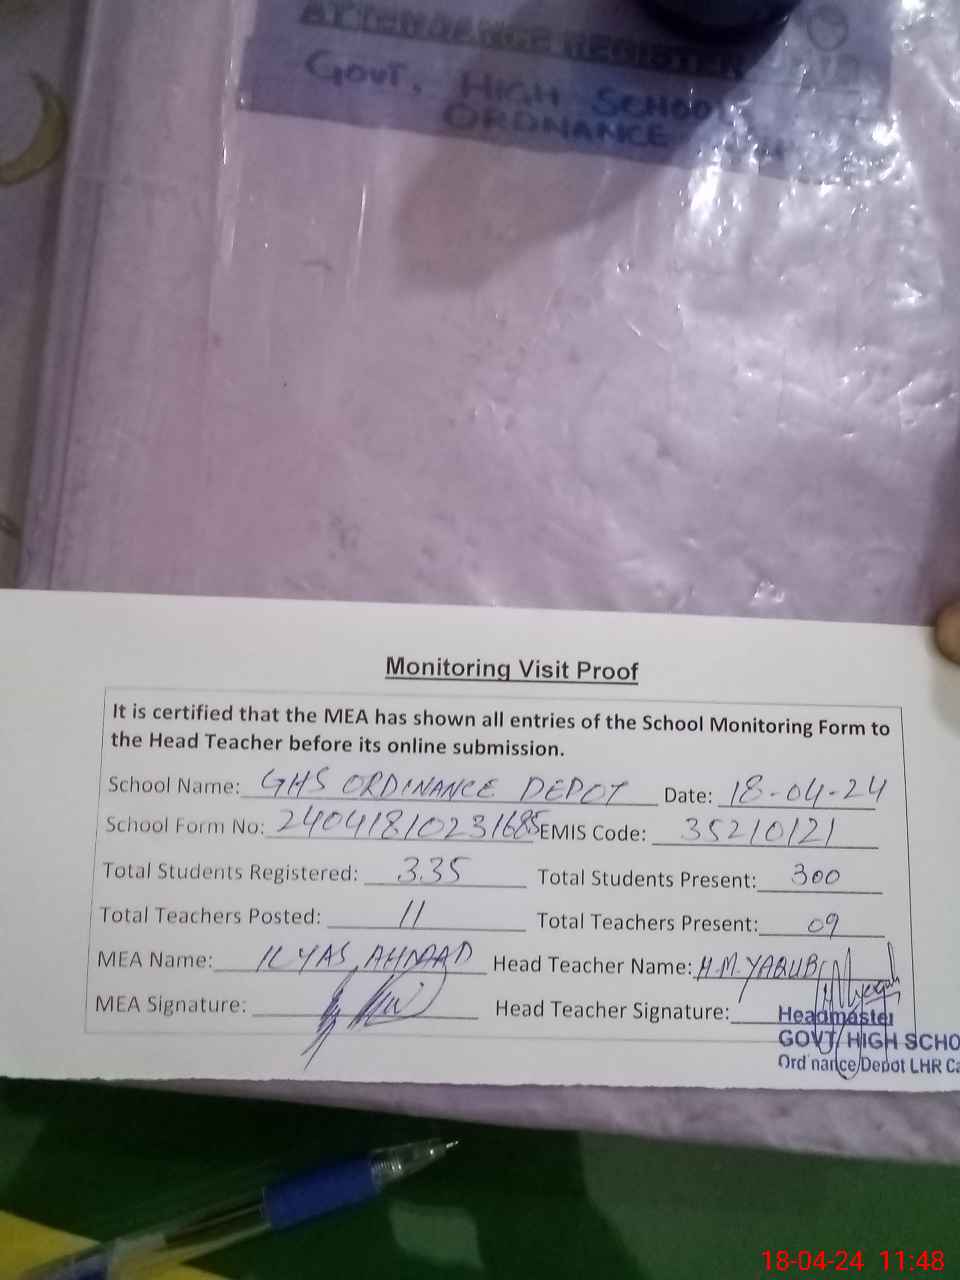 ATTENDANCE REGISTER
GOVT, HIGH SCHOOL
ORDNANCE
Monitoring Visit Proof
It is certified that the MEA has shown all entries of the School Monitoring Form to
the Head Teacher before its online submission.
School Name: GHS ORDINANCE DEPOT Date: 18-04-24
School Form No: 24041810231685 EMIS Code: 35210121
Total Students Registered: 335 Total Students Present: 300
Total Teachers Posted: 11 Total Teachers Present: 09
MEA Name: ILYAS AHMAD Head Teacher Name: H.M. YAQUB
MEA Signature: Head Teacher Signature:
Headmaster
GOVT HIGH SCHO
Ord nance Depot LHR Ca
18-04-24 11:48